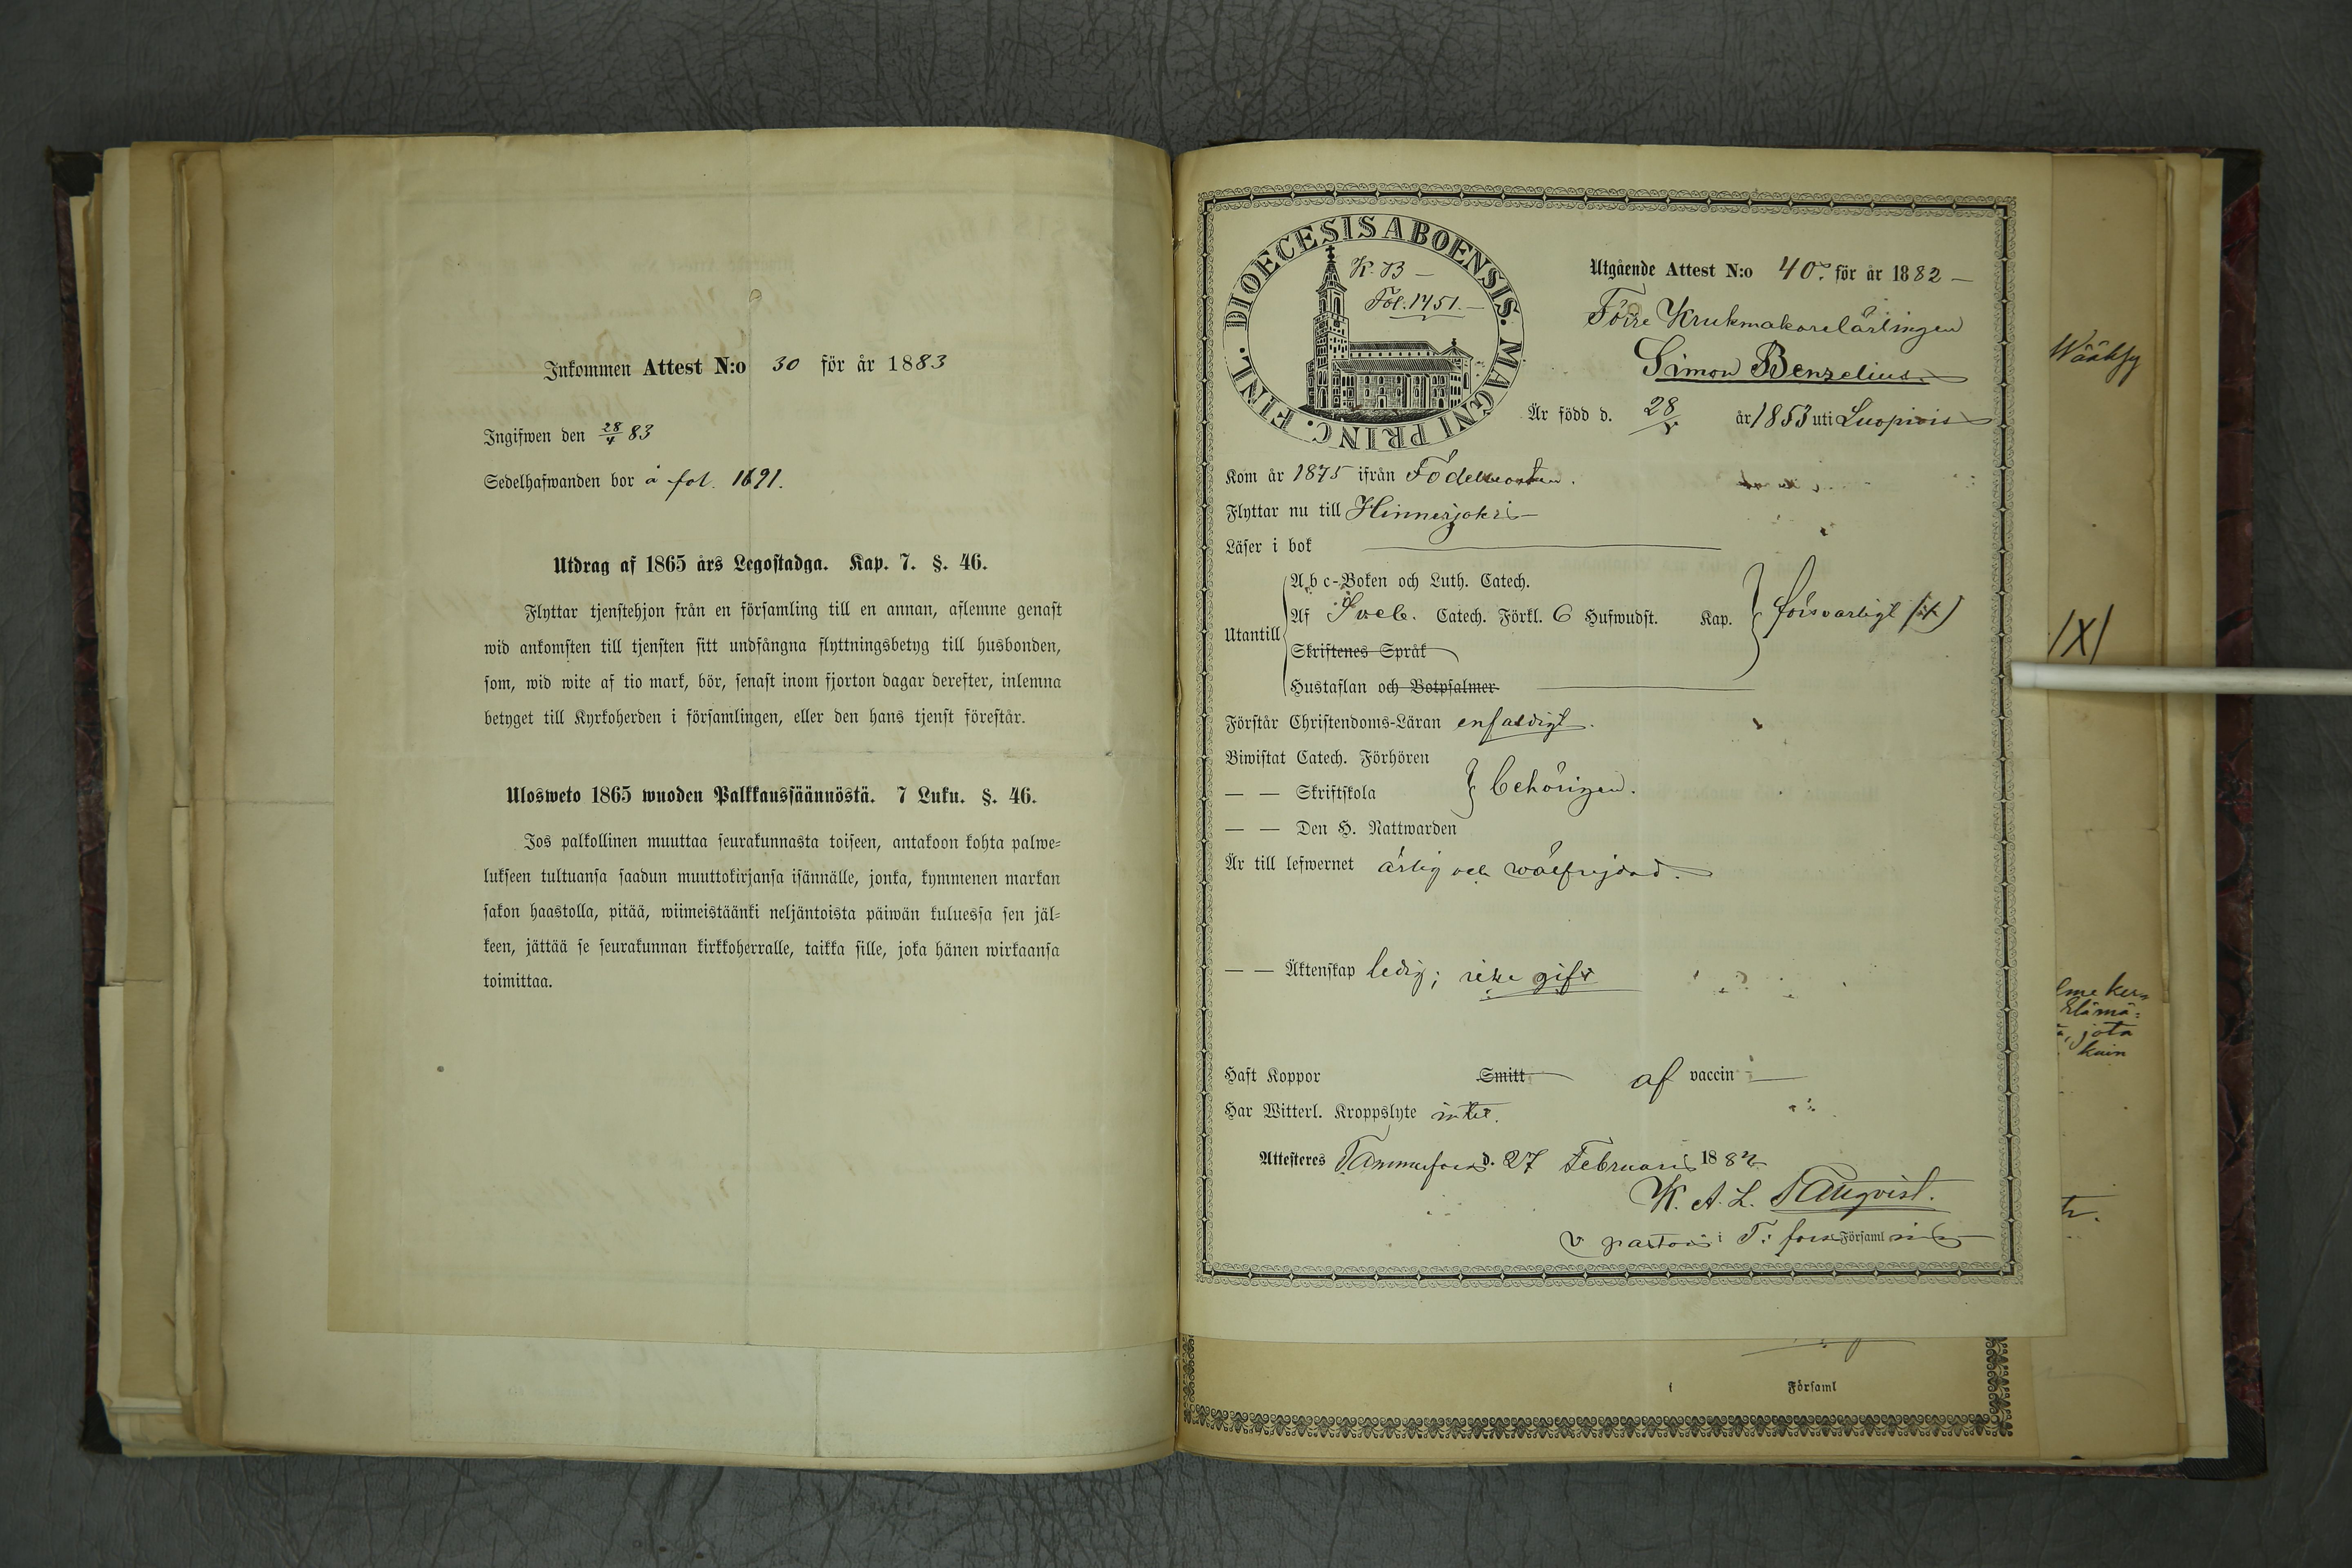 Inkommen Attest N:o 30 för år 1883
Ingifwen den 28/4 83
Sedelhafwanden bor å fol. 1691.
Utdrag af 1865 års Legostadga. Kap. 7. §. 46.
Flyttar tjenstehjon från en församling till en annan, aflemne genast
wid ankomsten till tjensten sitt undfångna flyttningsbetyg till husbonden,
som, wid wite af tio mark, bör, senast inom fjorton dagar derefter, inlemna
betyget till Kyrkoherden i församlingen, eller den hans tjenst förestår.
Ulosweto 1865 wuoden Palkkaussäännöstä. 7 Luku. §. 46.
Jos palkollinen muuttaa seurakunnasta toiseen, antakoon kohta palwe-
lukseen tultuansa saadun muuttokirjansa isännälle, jonka, kymmenen markan
sakon haastolla, pitää, wiimeistäänki neljäntoista päiwän kuluessa sen jäl-
keen, jättää se seurakunnan kirkkoherralle, taikka sille, joka hänen wirkaansa
toimittaa.
DIOECESIS ABOENSIS. MAGNI PRINC. FINL.
K. B —
Fol. 1451. —
Utgående Attest N:o 40. för år 1882 —
Förre Krukmakarelärlingen
Simon Benzelius.
Är född d. 28/5 år 1853 uti Luopiois
Kom år 1875 ifrån Födelseorten.
Flyttar nu till Hinnerjoki —
Läser i bok
Utantill
A b c-Boken och Luth. Catech.
Af Sveb. Catech. Förkl. 6 Hufwudst. Kap.
försvarligt (x)
Skriftenes Språk
Hustaflan och Botpsalmer
Förstår Christendoms-Läran enfaldigt.
Biwistat Catech. Förhören
— — Skriftskola
behörigen.
— — Den H. Nattwarden
Är till lefwernet ärlig och wälfrejdad.
— — Äktenskap ledig; icke gift
Haft Koppor Smitt af vaccin —
Har Witterl. Kroppslyte intet.
Attesteres Tammerfors d. 27 Februari 1882
K. A. L.
v pastor i T: fors Församling
i Församl
Wääksy
/X/
kuin
jota